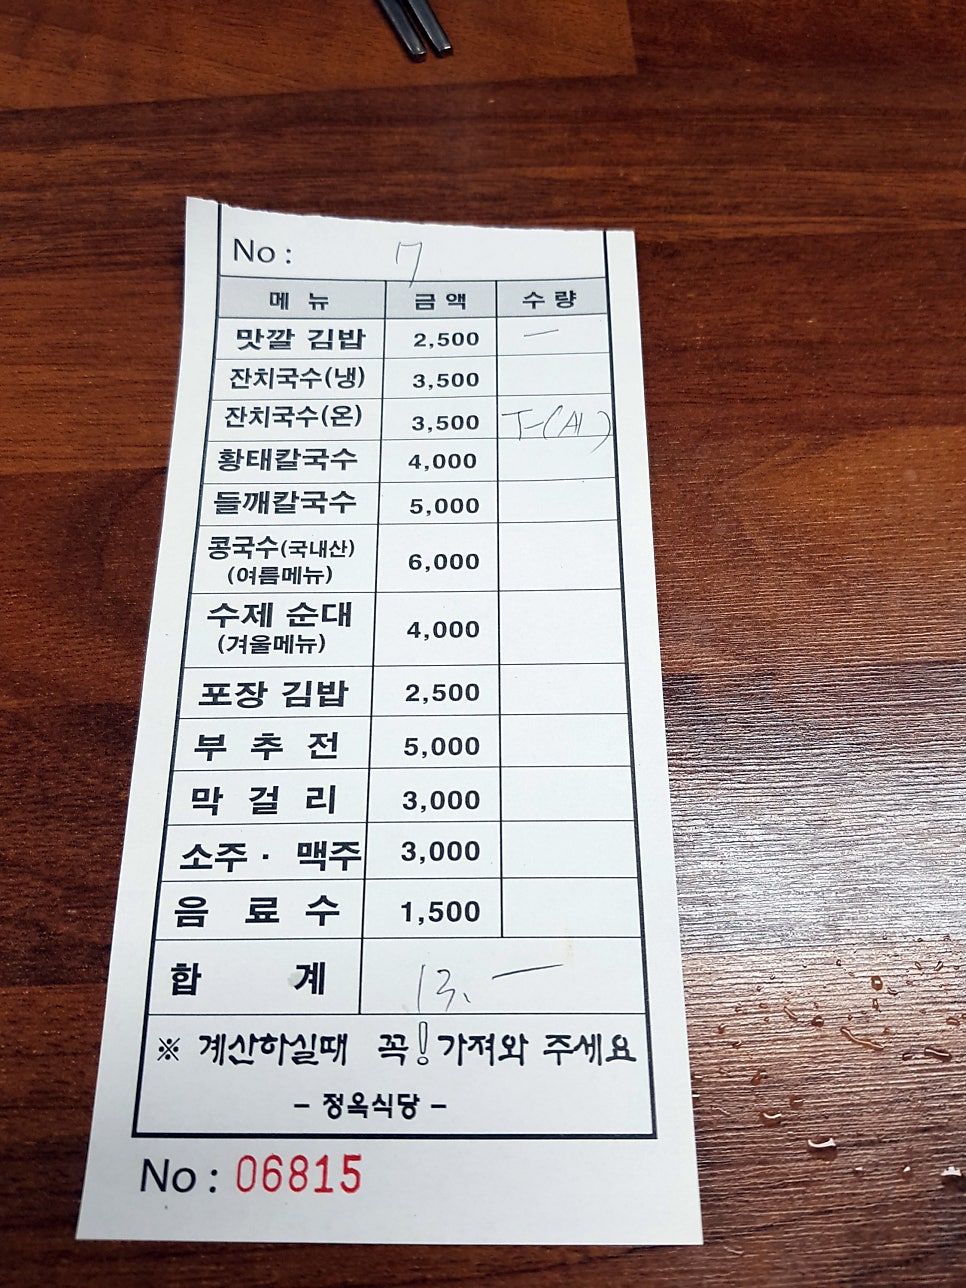 No : 7
메 뉴 금 액 수 량
맛깔 김밥 2,500 一
잔치국수(냉) 3,500
잔치국수(온) 3,500
황태칼국수 4,000
들깨칼국수 5,000
콩국수(국내산)
(여름메뉴) 6,000
수제 순대
(겨울메뉴) 4,000
포장 김밥 2,500
부 추 전 5,000
막 걸 리 3,000
소주 · 맥주 3,000
음 료 수 1,500
합 계 13. —
※ 계산하실때 꼭! 가져와 주세요
- 정옥식당 -
No : 06815